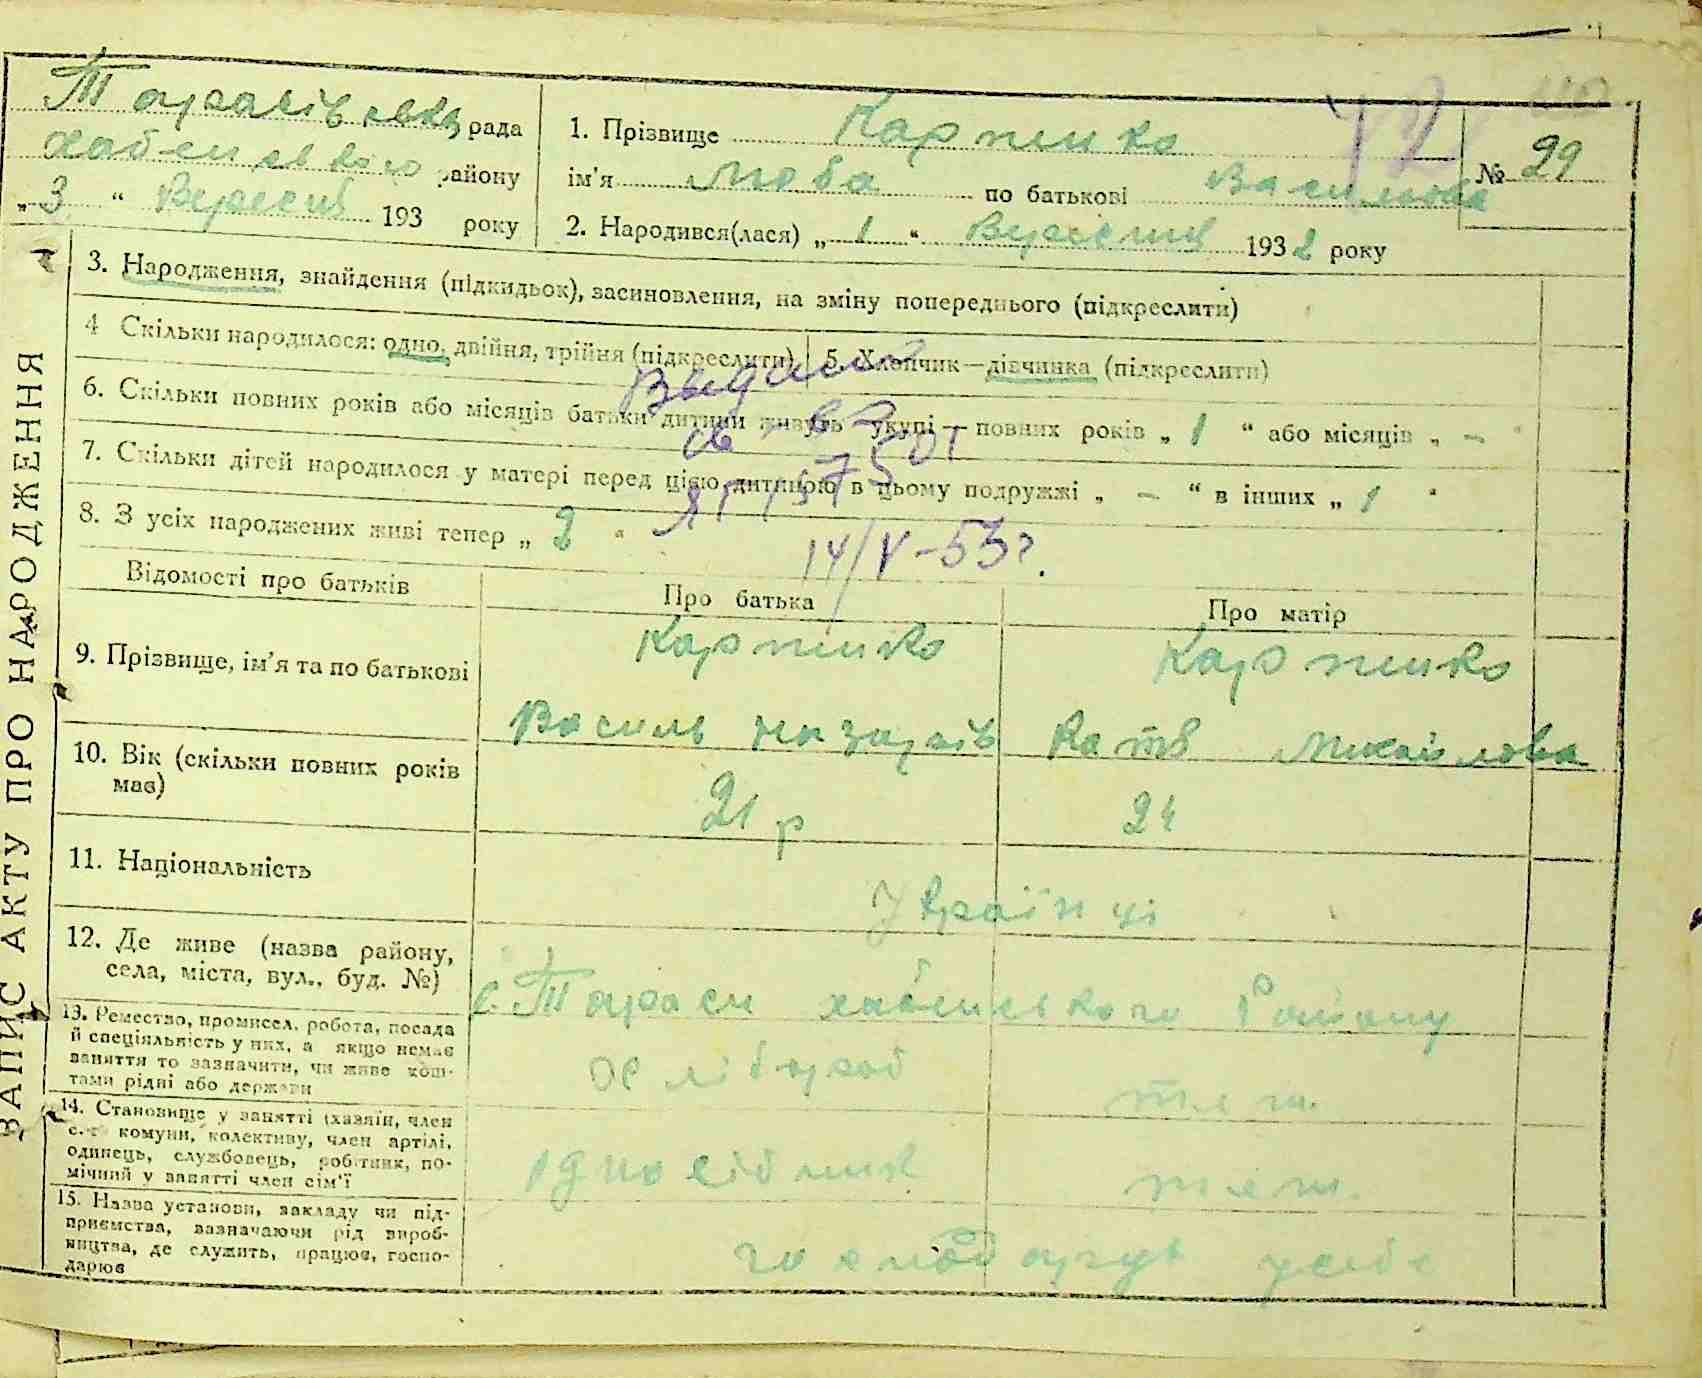 Тарасівська рада
хабенського району
„ 3 “ Вересня 193 року
1. Прізвище Карпенко
ім'я Люба по батькові Василівна
№ 29
2. Народився(лася) „ 1 “ Вересня 1932 року
ЗАПИС АКТУ ПРО НАРОДЖЕННЯ
3. Народження, знайдення (підкидьок), засиновлення, на зміну попереднього (підкреслити)
4 Скільки народилося: одно, двійня, трійня (підкреслити)
5. Хлопчик—дівчинка (підкреслити)
6. Скільки повних років або місяців батьки дитини живуть укупі—повних років „ 1 “ або місяців „ – “
7. Скільки дітей народилося у матері перед цією дитиною в цьому подружжі „ – “ в інших „ 1 “
8. З усіх народжених живі тепер „ 2 “
14/V-53г.
Відомості про батьків
Про батька
Про матір
9. Прізвище, ім'я та по батькові
Карпенко
Василь Назарів
Карпенко
Катя Михайлова
10. Вік (скільки повних років
має)
21 р
24
11. Національність
Українці
12. Де живе (назва району,
села, міста, вул., буд. №)
с. Тараси хабенського Району
13. Ремество, промисел, робота, посада
й спеціяльність у них, а якщо немає
заняття то зазначити, чи живе кош-
тами рідні або держави
хлібороб
теж
14. Становище у занятті (хазяїн, член
комуни, колективу, член артілі,
одинець, службовець, робітник, по-
мічний у занятті член сім'ї
односібник
теж
15. Назва установи, закладу чи під-
приємства, зазначаючи рід вироб-
ництва, де служить, працює, госпо-
дарює
у себе